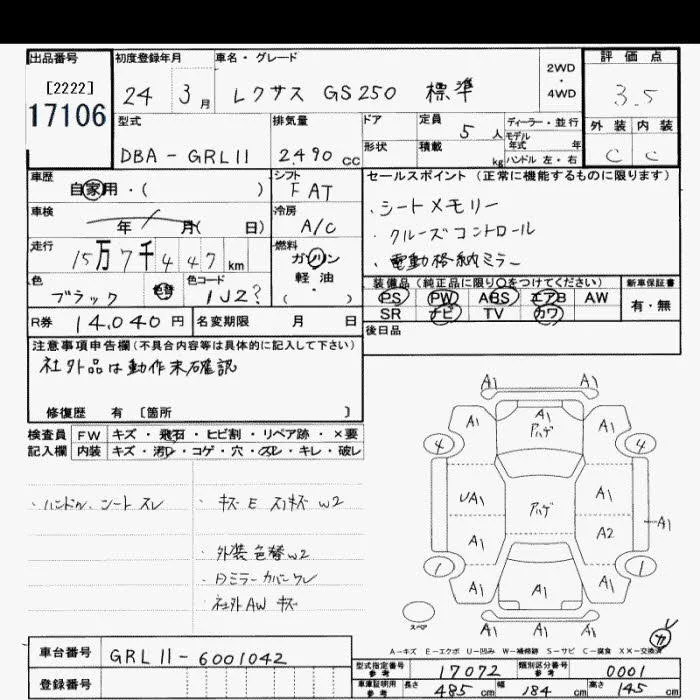 出品番号
[2222]
17106
初度登録年月
24 3月
車名・グレード
レクサス GS250 標準
2WD
・
4WD
評価点
3.5
外装 内装
C C
型式
DBA-GRL11
排気量
2.490 cc
ドア
形状
定員 5 人
積載 kg
ディーラー・並行
モデル
年式 年
ハンドル 左・右
車歴
自家用・( )
シフト
FAT
車検
年 月( 日)
冷房
A/C
走行
15万7千447 km
燃料
ガソリン
軽・油
・( )
色
ブラック 色替
色コード
1J2?
R券 14,040円
名変期限 月 日
セールスポイント(正常に機能するものに限ります)
・シートメモリー
・クルーズコントロール
・電動格納ミラー
装備品(純正品に限り〇をつけてください)
PS PW ABS エアB AW
SR ナビ TV カワ
新車保証書
有・無
後日品
注意事項申告欄(不具合内容等は具体的に記入して下さい)
社外品は動作未確認
修復歴 有 〔箇所 〕
検査員 FW キズ・飛石・ヒビ割・リペア跡・×要
記入欄 内装 キズ・汚レ・コゲ・穴・スレ・キレ・破レ
・ハンドル、シート スレ
・キズ E スリキズ W2
・外装色替W2
・Dミラーカバーワレ
・社外AW キズ
A1 A1
A1 A1 A1
アハゲ
4 4
UA1 アハゲ A1
A1 A2 A1
1 1
A1 A1 A1
A1 A1 A1
スペア
カ
A-キズ E-エクボ U-凹み W-補修跡 S-サビ C-腐食 XX-交換済
車台番号 GRL11-6001042
登録番号
型式指定番号
参考
17072
類別区分番号
参考
0001
車庫証明用
参考
長さ 485 cm 幅 184 cm 高さ 145 cm